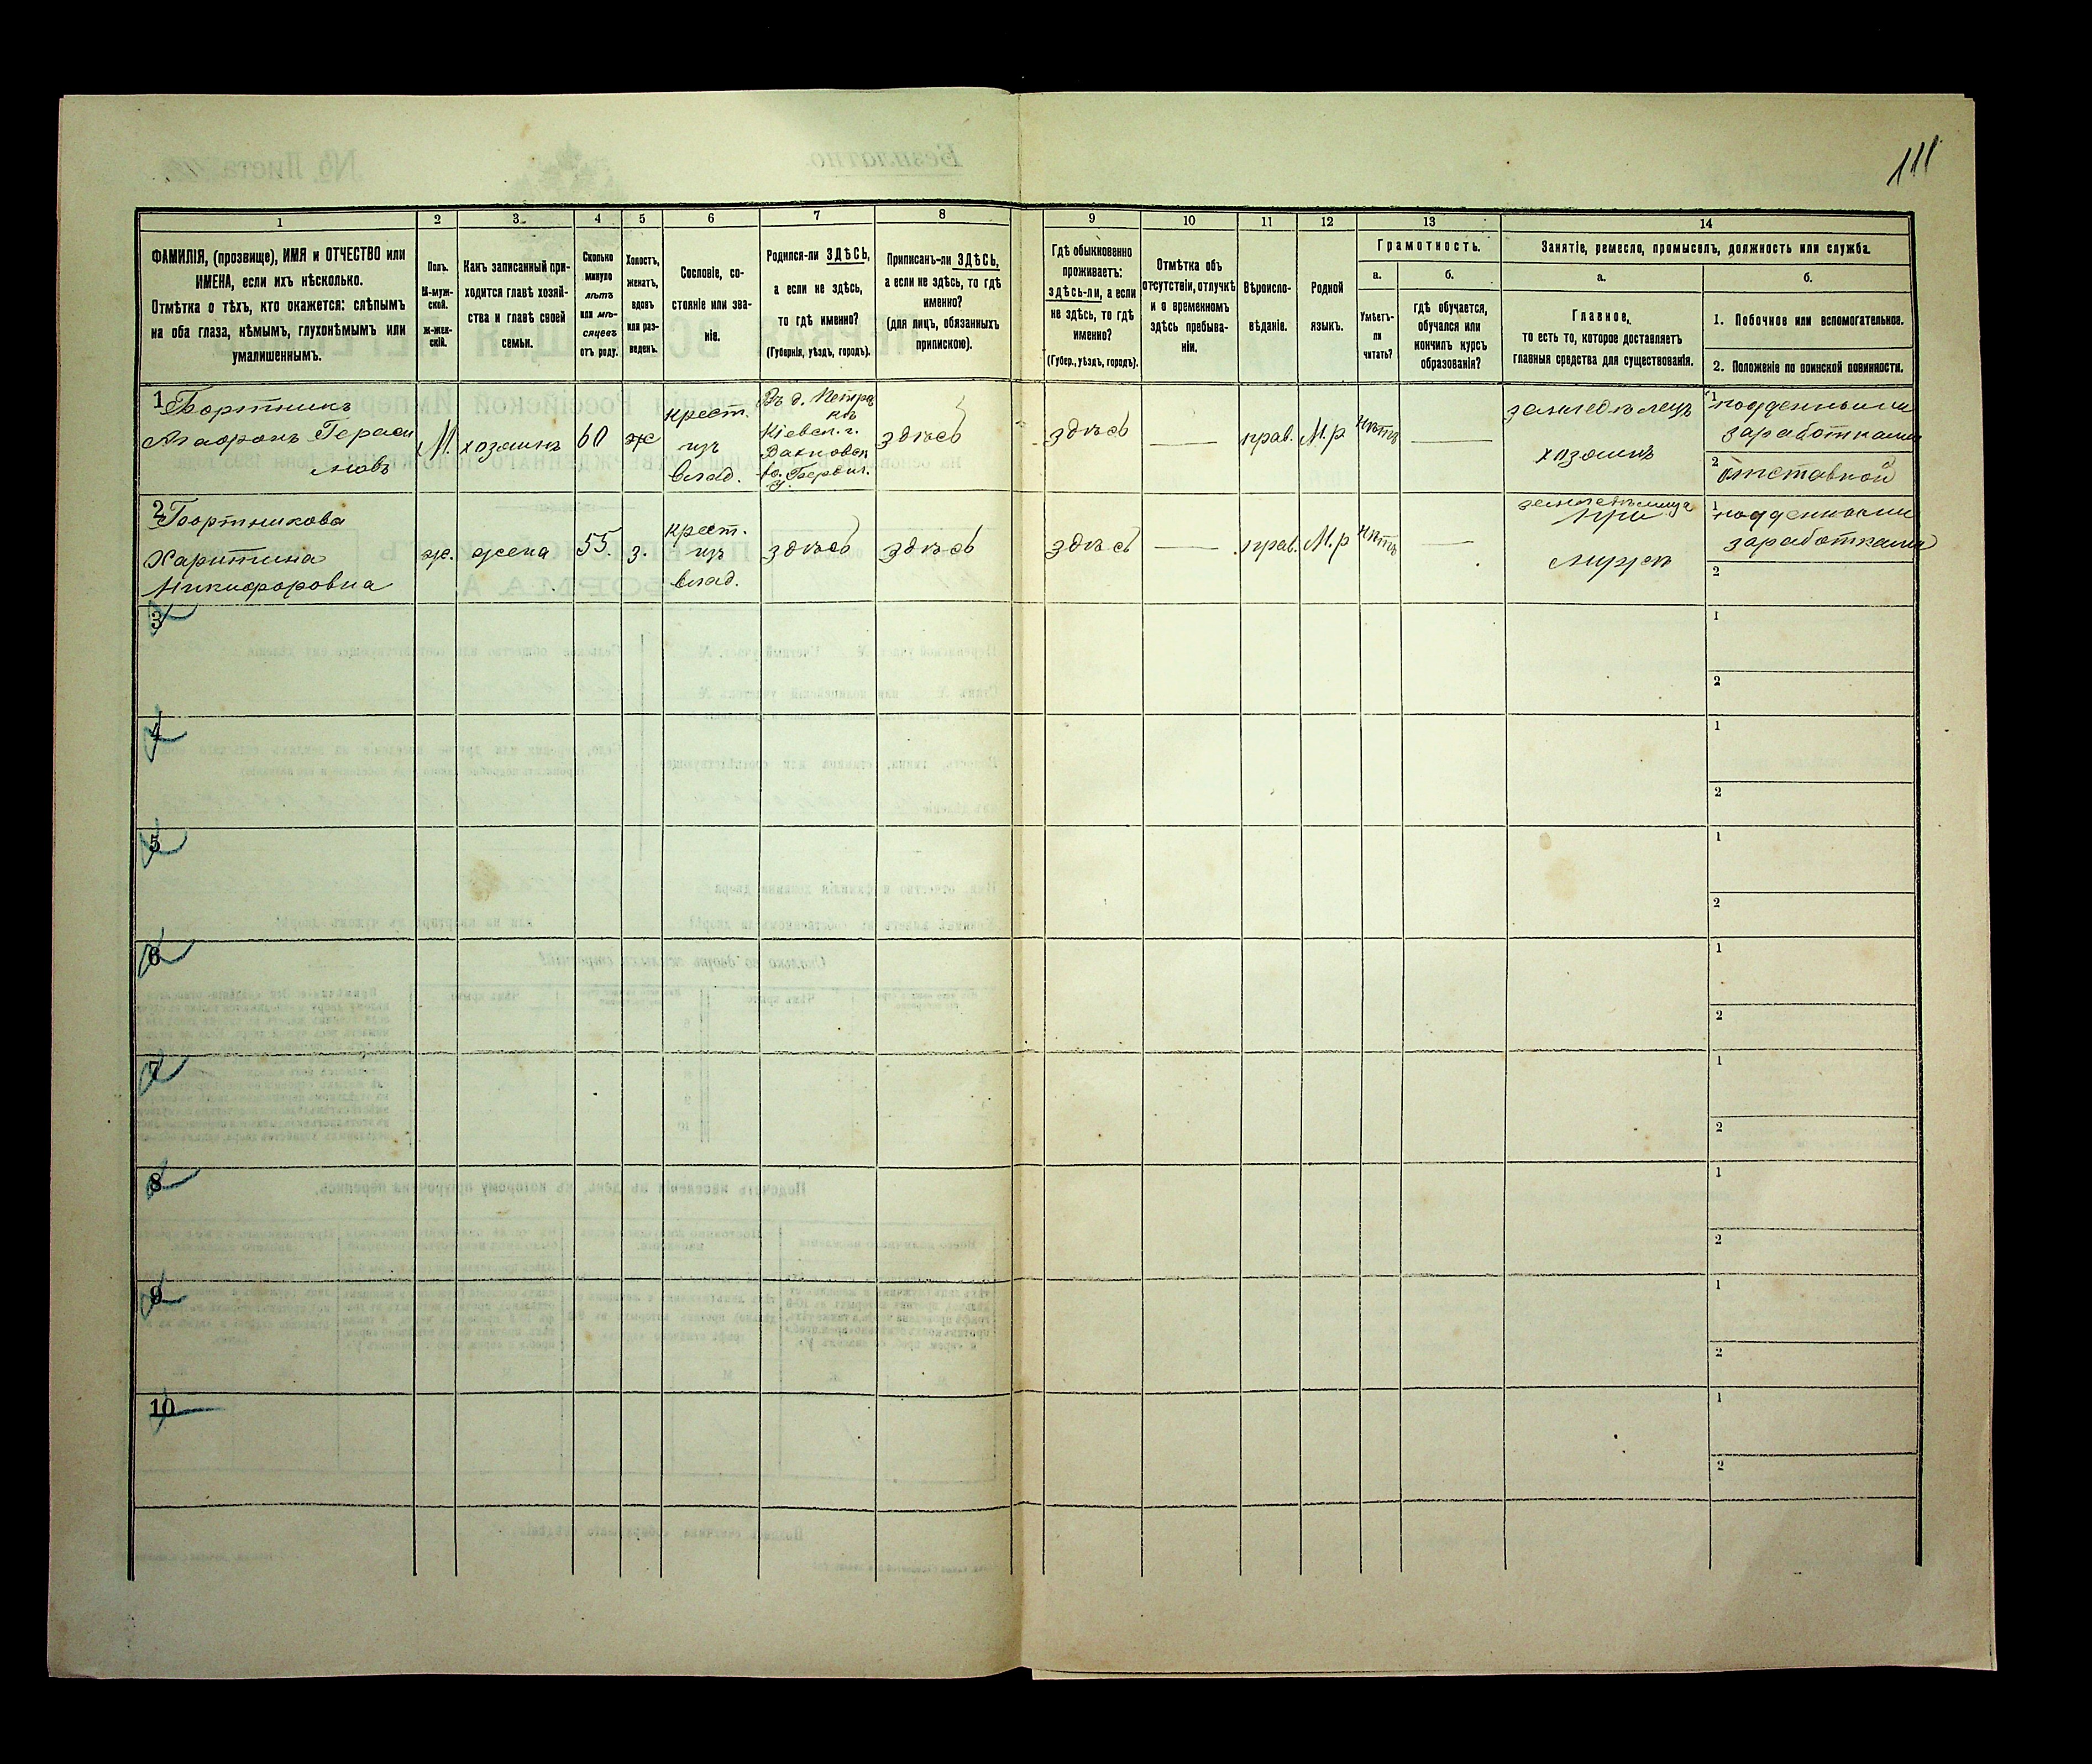 111
1 2 3 4 5 6 7 8 9 10 11 12 13 14
ФАМИЛІЯ, (прозвище), ИМЯ и ОТЧЕСТВО или
ИМЕНА, если ихъ нѣсколько.
Отмѣтка о тѣхъ, кто окажется: слѣпымъ
на оба глаза, нѣмымъ, глухонѣмымъ или
умалишеннымъ.
Полъ.
М-муж-
ской.
ж-жен-
скій.
Какъ записанный при-
ходится главѣ хозяй-
ства и главѣ своей
семьи.
Сколько
минуло
лѣтъ
или мѣ-
сяцевъ
отъ роду.
Холостъ,
женатъ,
вдовъ
или раз-
веденъ.
Сословіе, со-
стояніе или зва-
ніе.
Родился-ли ЗДѢСЬ,
а если не здѣсь,
то гдѣ именно?
(Губернія, уѣздъ, городъ).
Приписанъ-ли ЗДѢСЬ,
а если не здѣсь, то гдѣ
именно?
(для лицъ, обязанныхъ
припискою).
Гдѣ обыкновенно
проживаетъ:
здѣсь-ли, а если
не здѣсь, то гдѣ
именно?
(Губер., уѣздъ, городъ).
Отмѣтка объ
отсутствіи, отлучкѣ
и о временномъ
здѣсь пребыва-
ніи.
Вѣроиспо-
вѣданіе.
Родной
языкъ.
Грамотность.
а.
Умѣетъ-
ли
читать?
б.
гдѣ обучается,
обучался или
кончилъ курсъ
образованія?
Занятіе, ремесло, промыселъ, должность или служба.
а.
Главное,
то есть то, которое доставляетъ
главныя средства для существованія.
б.
1. Побочное или вспомогательное.
2. Положеніе по воинской повинности.
1 Бортникъ
Агафонъ Гераси
мовъ
М.
хозяинъ
60
ж
крест.
изъ
влад.
Въ д. Петра
Кіевск. г.
здѣсь
здѣсь
—
прав.
М.р
нѣтъ
—
земледѣлецъ
хозяинъ
1 подденными
заработками
2 отставной
2 Бортникова
Харитина
Никифоровна
ж.
жена
55.
з.
крест.
изъ
влад.
здѣсь
здѣсь
здѣсь
—
прав.
М.р
нѣтъ
—
при
мужѣ
1 подденными
заработками
2
3
1
2
4
1
2
5
1
2
6
1
2
7
1
2
8
1
2
9
1
2
10
1
2